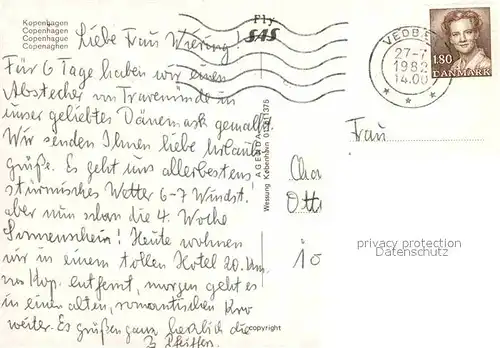 Kopenhagen
Copenhagen
Copenhague
Copenaghen
Fly
SAS
VEDBÆK
27-7
1982
14.00
1.80
DANMARK
Liebe Frau
Für 6 Tage haben wir einen
Abstecher von Travemünde in
unser geliebtes Dänemark gemacht.
Wir senden Ihnen liebe Urlaubs
grüße. Es geht uns allerbestens
stürmisches Wetter 6-7 Windst.
aber nun schon die 4. Woche
Sonnenschein! Heute wohnen
wir in einem tollen Hotel 20 km
von Kop. entfernt, morgen geht es
in einen alten, romantischen Kro
weiter. Es grüßen ganz herzlich die
Pfeiffer
AGENDA
Wessung København
Frau
Otti
10
privacy protection
Datenschutz
copyright